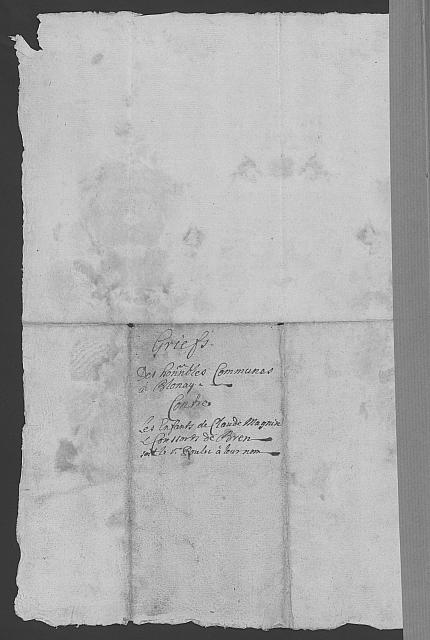 Griefs.
Des hon.bles Communes
de Blonay.
Contre
Les Enfants de Claude Magnin
& Consorts de Bren
soit le Sr. à leur nom